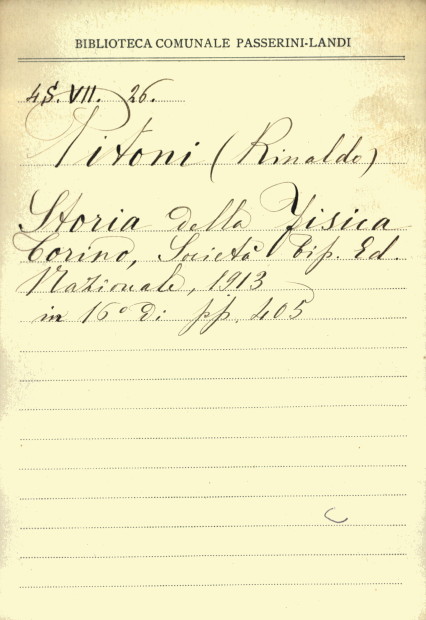 BIBLIOTECA COMUNALE PASSERINI-LANDI
4S.VII. 26.
Pitoni (Rinaldo)
Storia della Fisica
Torino, Società Tip. Ed.
Nazionale, 1913
in 16° di pp. 405